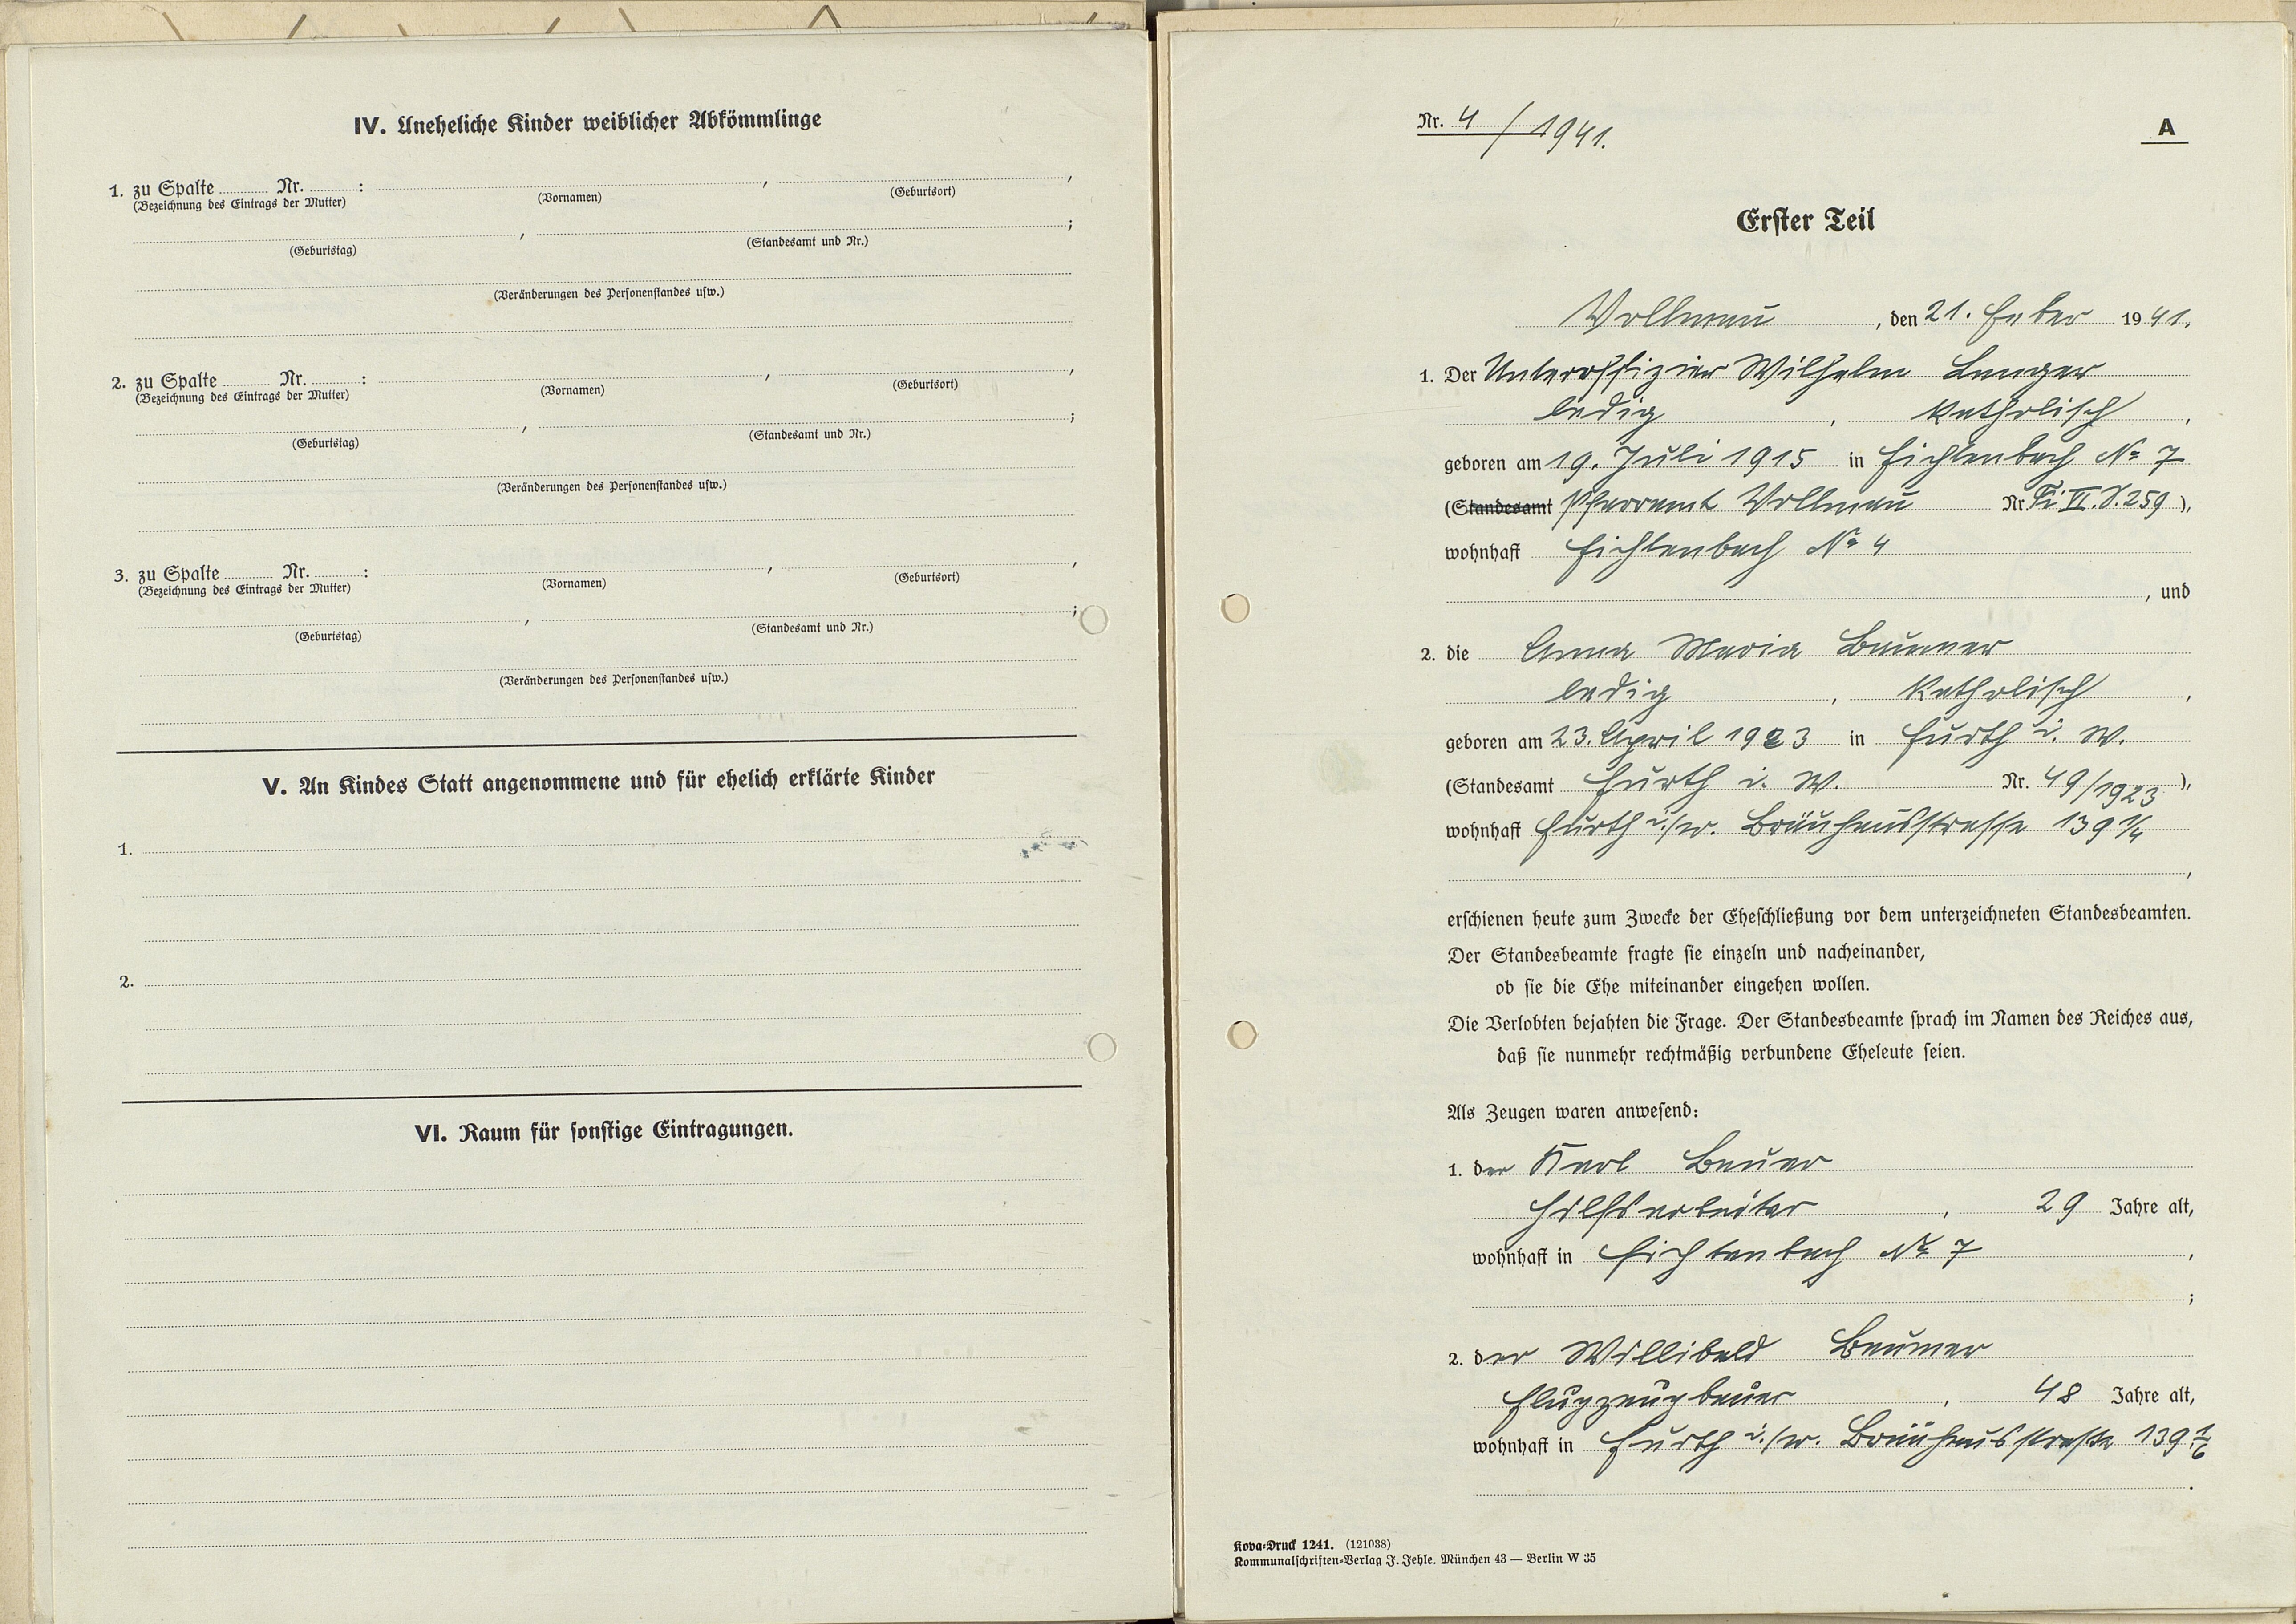 IV. Uneheliche Kinder weiblicher Abkömmlinge
1. zu Spalte Nr. : , ,
(Bezeichnung des Eintrags der Mutter) (Vornamen) (Geburtsort)
, ;
(Geburtstag) (Standesamt und Nr.)
(Veränderungen des Personenstandes usw.)
2. zu Spalte Nr. : , ,
(Bezeichnung des Eintrags der Mutter) (Vornamen) (Geburtsort)
, ;
(Geburtstag) (Standesamt und Nr.)
(Veränderungen des Personenstandes usw.)
3. zu Spalte Nr. : , ,
(Bezeichnung des Eintrags der Mutter) (Vornamen) (Geburtsort)
, ;
(Geburtstag) (Standesamt und Nr.)
(Veränderungen des Personenstandes usw.)
V. An Kindes Statt angenommene und für ehelich erklärte Kinder
1.
2.
VI. Raum für sonstige Eintragungen.
Nr. 4/1941.
A
Erster Teil
Vollmau, den 21. Feber 1941.
1. Der Unteroffizier Wilhelm
ledig, katholisch,
geboren am 19. Juli 1915 in Fichtenbach No 7
(Standesamt Pfarramt Vollmau Nr. Fi VI. S. 259),
wohnhaft Fichtenbach No 4
, und
2. die Anna Maria
ledig, katholisch,
geboren am 23. April 1923 in Furth i. W.
(Standesamt Furth i. W. Nr. 49/1923),
wohnhaft Furth i./W. Bräuhausstrasse 139 1/4
,
erschienen heute zum Zwecke der Eheschließung vor dem unterzeichneten Standesbeamten.
Der Standesbeamte fragte sie einzeln und nacheinander,
ob sie die Ehe miteinander eingehen wollen.
Die Verlobten bejahten die Frage. Der Standesbeamte sprach im Namen des Reiches aus,
daß sie nunmehr rechtmäßig verbundene Eheleute seien.
Als Zeugen waren anwesend:
1. der Karl Bauer
Hilfsarbeiter, 29 Jahre alt,
wohnhaft in Fichtenbach No 7,
;
2. der Willibald
Flugzeugbauer, 48 Jahre alt,
wohnhaft in Furth i./W. Bräuhausstraße
.
Kova-Druck 1241. (121038)
Kommunalschriften-Verlag J. Jehle. München 43 — Berlin W 35